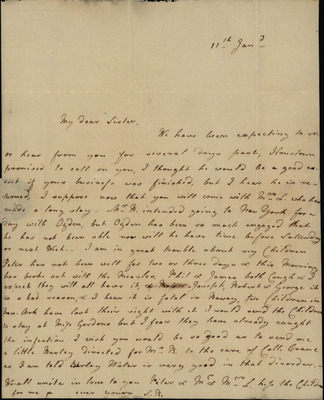 11th Jany
My dear Sister.
We have been expecting to see
or hear from you for several days past,
promised to call on you, I thought he would be a good es
cort if your business was finished, but I hear he is re
turned, I suppose now that you will come with Mr L who has
made a long stay. Mr N. intended going to New York for a
day with Ogden, but Ogden has been so much engaged that
he has not been able now will he leave it before Saturday
or next Week. I am in great trouble about my Children
Peter has not been well for two or three days & this Morning
has broke out with the Measles, Phil & James both Cough & I
expect they will all have it, Joseph, Robert & George it
is a bad season, & I hear it is fatal in Newark, two Children in
New Ark have lost their sight with it I would send the Children
to stay at Miss Gordons but I fear they have already caught
the infection I wish you would be so good as to send me
a little Barley directed for Mr N. to the care of Colls
as I am told Barley Water is very good in that disorder.
We all unite in love to you Peter & Mr & Mrs L kiss the Children
for me ever yours S.N.